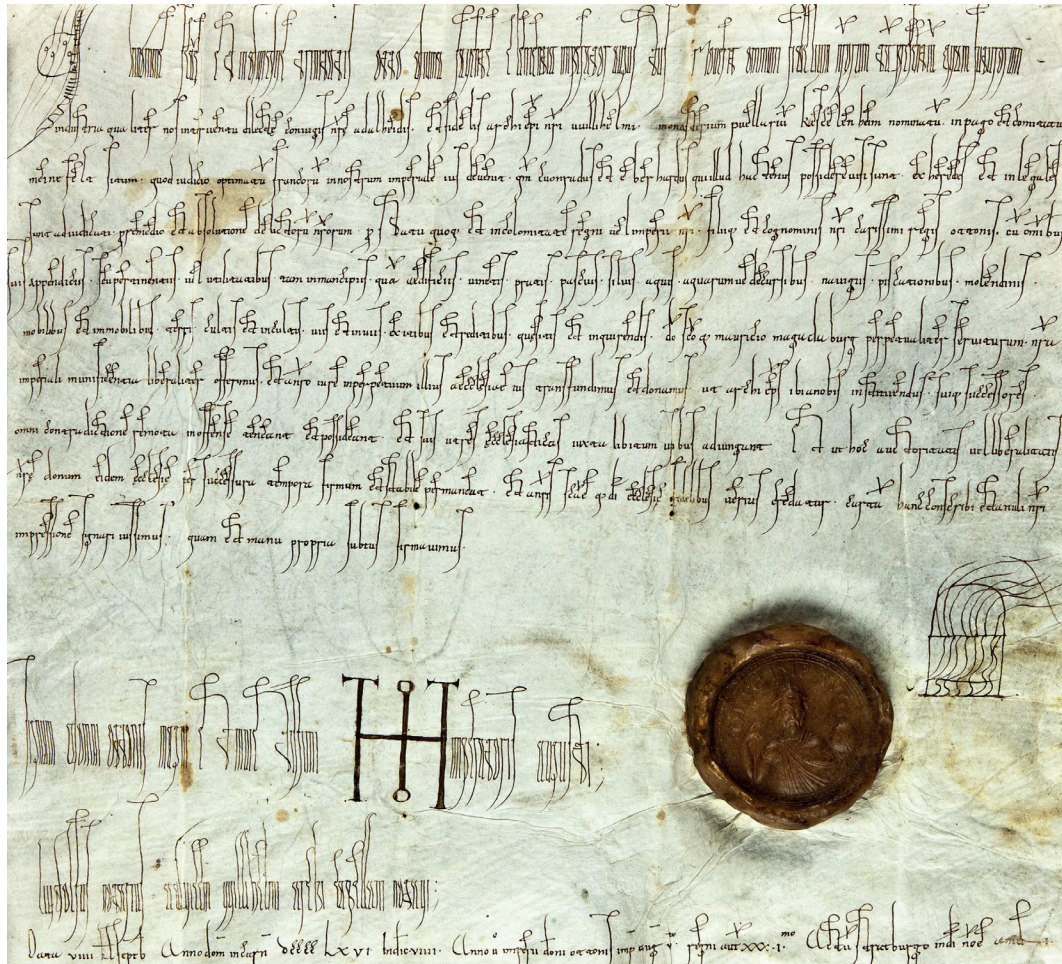 divina favente clementia imperator august Noverit omnium fidelium
industria qualiter nos interventu dilecte coniugis nrę adalheidis. et fidelis archiepi nri uuillihelmi. monasterium puellarū kescelenheim nominatū. in pago et comitatu
meinefelt situm. quod iudicio optimatū francorū in nostrum imperiale ius devenit. cuonradus et eberhardus qui illud hactenus possidere visi sunt. exheredes et inlegales
sunt adiudicati. pro remedio et absolutione delictorū nrorum. statu quoq. et incolomitate regni vel imperii nri. filiiq. et cognominis nri carissimi regis ottonis. cū omibus
suis appendiciis. seu pertinentiis. vel utilitatibus tam in mancipiis quā aedificiis. vineis. pratis. pascuis. silvis. aquis aquarumve decursibus. navigiis. piscationibus. molendinis.
mobilibus et immobilibus. terris cultis et incultis. viis et inviis. exitibus et reditibus. quesitis et inquirendis. dō scōq. mauricio magadaburg perpetualiter serviturum. nra
imperiali munificentia liberaliter offerimus. et a nro iure in perpetuum illius aecclesiae ius transfundimus et donamus. ut archi eps ibi a nobis instituendus. suiq. successores
omni contradictione remota teneant et possideant. et in sui usus ecclesiasticos iuxta libitum vribus adiungant. Et ut hec auctoritatis vel liberalitatis
nrę donum eidem ecclesię per successura tempora firmum et stabile permaneat. et a nris scę di ecclesię fidelibus verius credatur. cartā hanc conscribi et anuli nri
impressione signari iussimus. quam et manu propria subtus firmavimus.
Signum domni ottonis magni et invictissimi imperatoris augusti;
Liudolfus cancellarius advicem uuillihelmi archicappellani
Data viiii kl septb Anno dom incarn dcccc lxvi Indic viiii. Anno imperii domi ottonis imp aug v regni aut xxx. i. mo Actū in dī noē amen